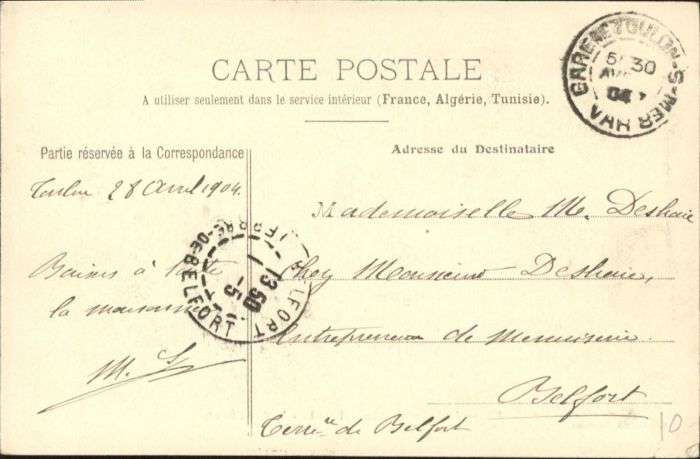 CARTE POSTALE
A utiliser seulement dans le service intérieur (France, Algérie, Tunisie).
Partie réservée à la Correspondance
Adresse du Destinataire
TOULON-S-MER VAR
5 30
AVR
04
Toulon 28 Avril 1904.
Baisers à toute
la maisonnée
M.
Mademoiselle M. Deshaie
Chez Monsieur Deshaie,
Entrepreneur de Menuiserie
Belfort
Terre de Belfort
BELFORT
3 50
-5
BELFORT
0